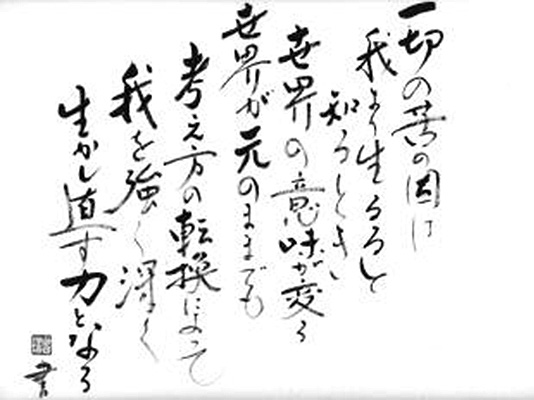 一切の苦の因は
我より生るると
知るとき
世界の意味が変る
世界が元のままでも
考え方の転換によって
我を強く深く
生かし直す力となる
書